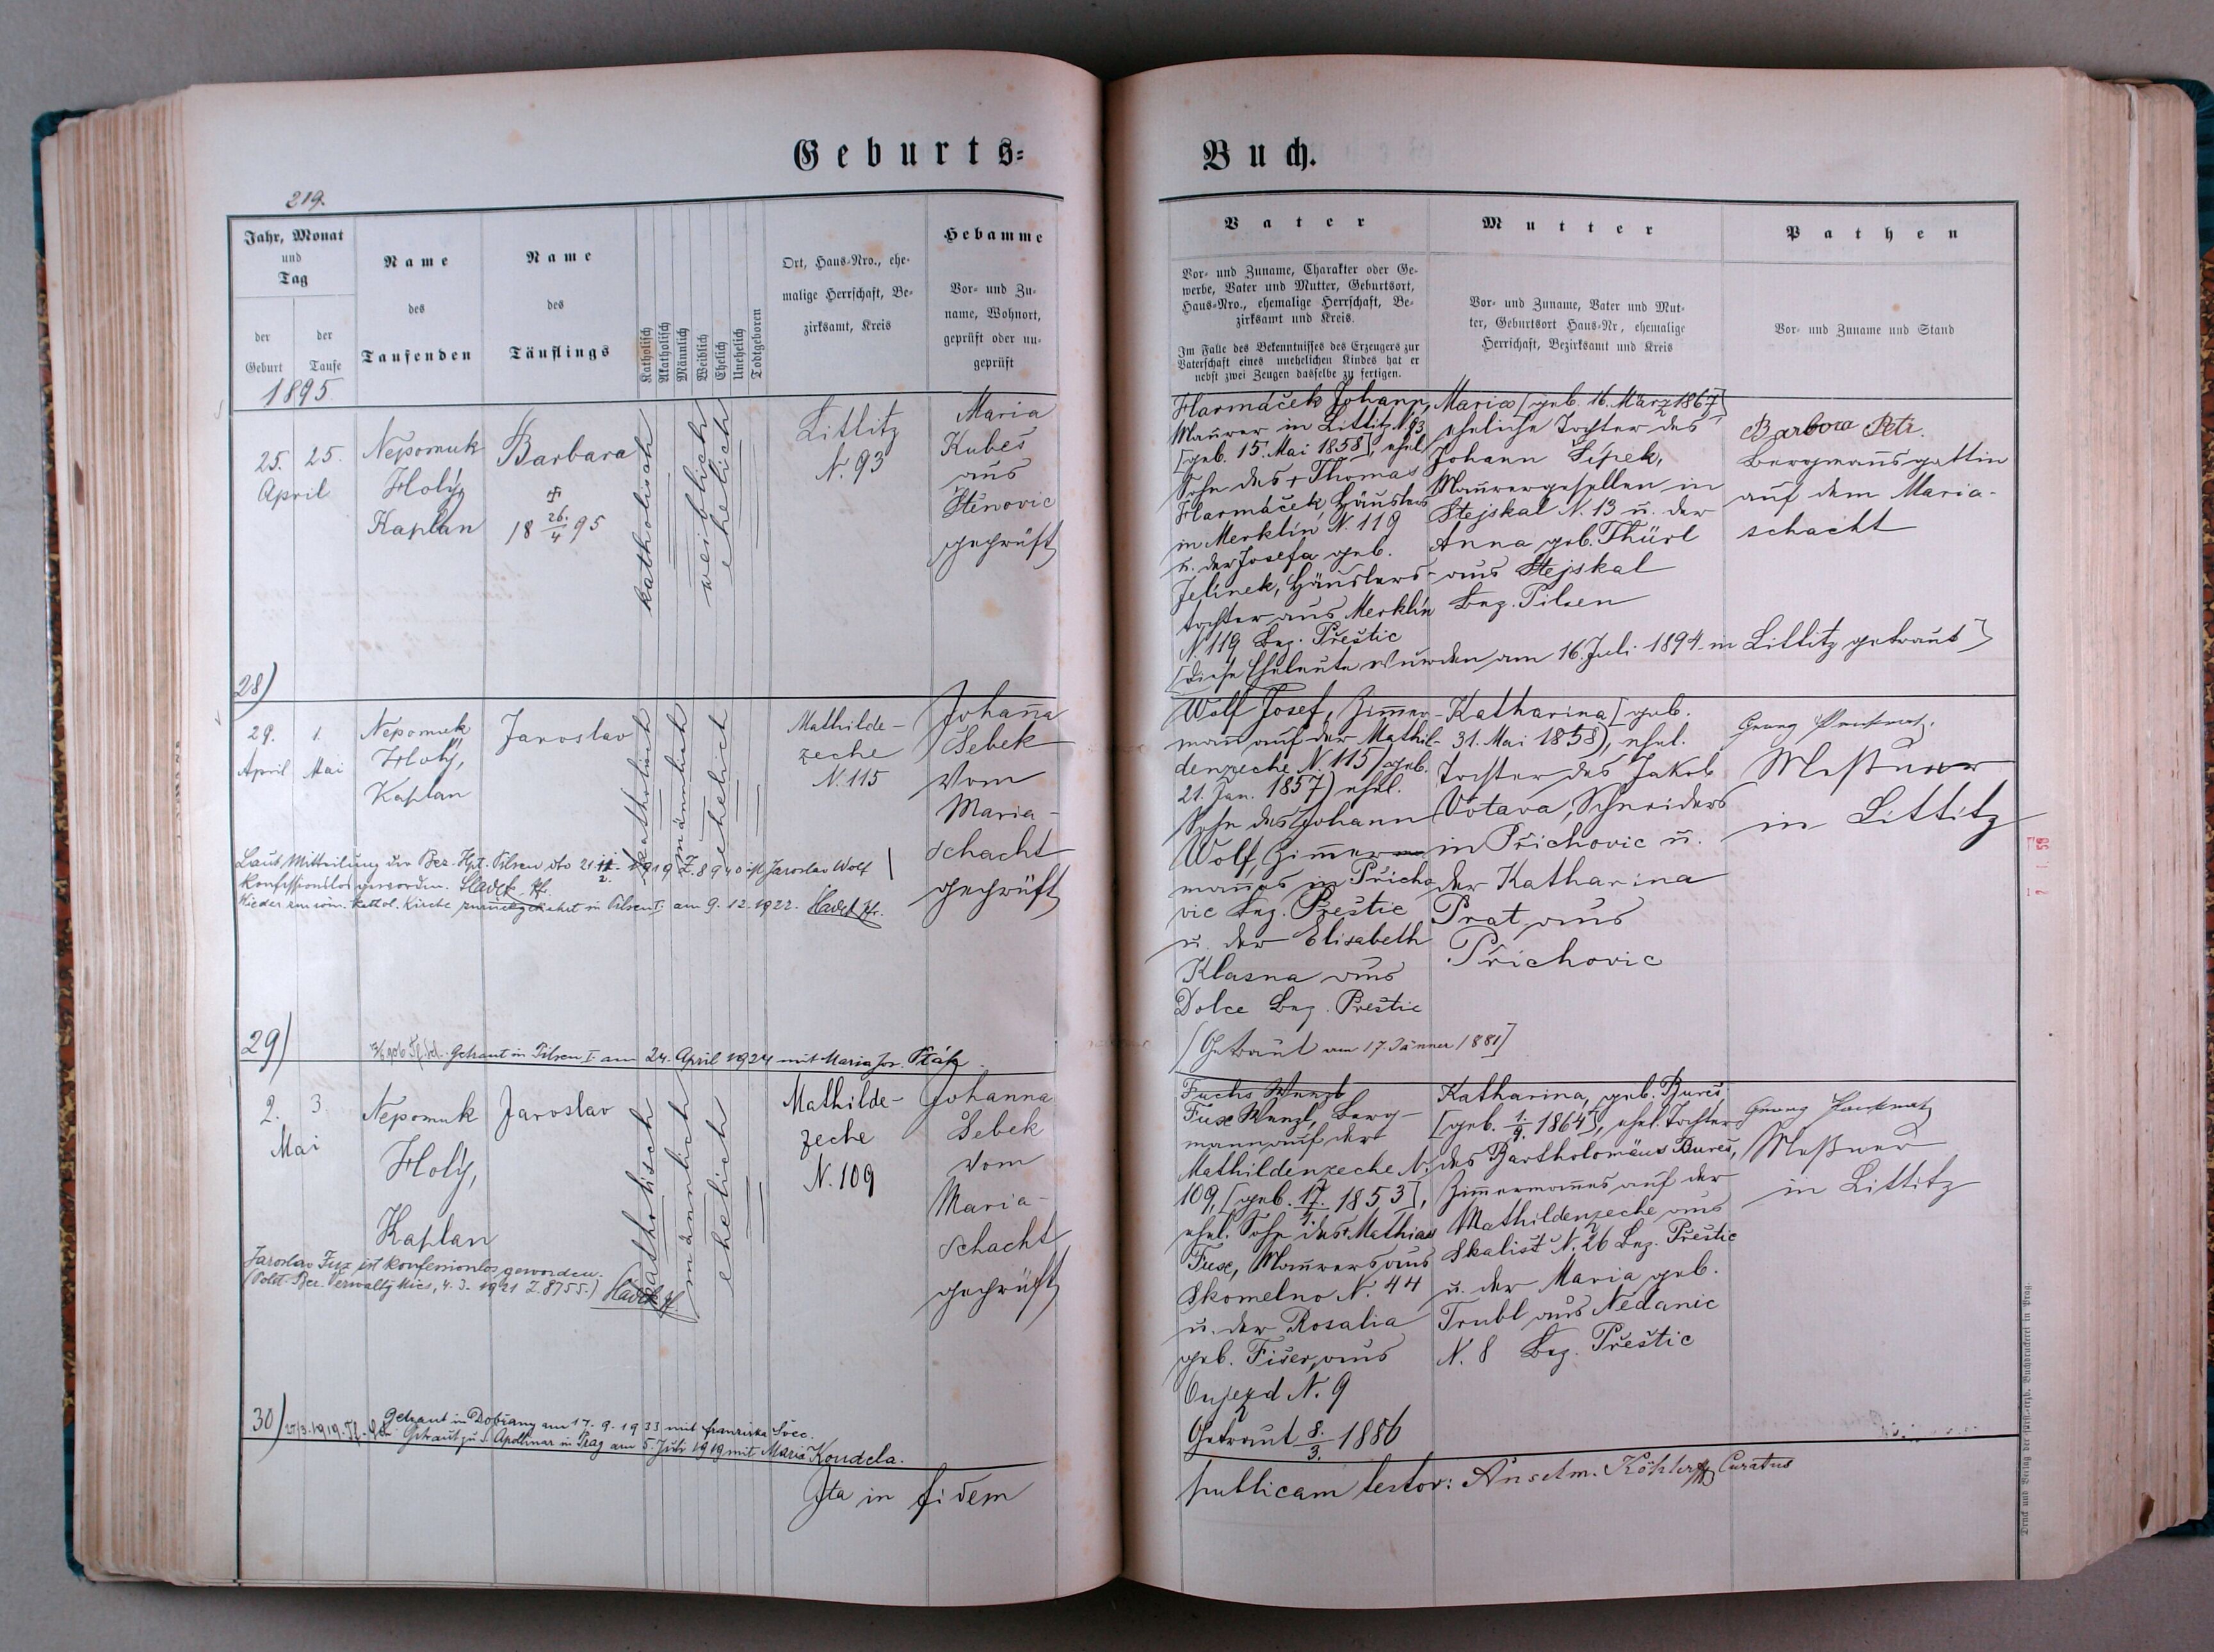 Geburts=
Buch.
219.
Jahr, Monat
und
Tag
der
Geburt
der
Taufe
Name
des
Taufenden
Name
des
Täuflings
Katholisch
Akatholisch
Männlich
Weiblich
Ehelich
Unehelich
Todtgeboren
Ort, Haus-Nro., ehe-
malige Herrschaft, Be-
zirksamt, Kreis
Hebamme
Vor- und Zu-
name, Wohnort,
geprüft oder un-
geprüft
Vater
Vor- und Zuname, Charakter oder Ge-
werbe, Vater und Mutter, Geburtsort,
Haus-Nro., ehemalige Herrschaft, Be-
zirksamt und Kreis.
Im Falle des Bekenntnisses des Erzeugers zur
Vaterschaft eines unehelichen Kindes hat er
nebst zwei Zeugen dasselbe zu fertigen.
Mutter
Vor- und Zuname, Vater und Mut-
ter, Geburtsort Haus-Nr, ehemalige
Herrschaft, Bezirksamt und Kreis
Pathen
Vor- und Zuname und Stand
1895
25.
April
25.
Nepomuk
Holý,
Kaplan
Barbara
18 26./4 95
katholisch
weiblich
ehelich
Littitz
N. 93
Maria
Kubeš
aus
Štěnovic
geprüft
Harmáček Johann,
Maurer in Littitz N. 93
[geb. 15. Mai 1858], ehel.
Sohn des + Thomas
Harmáček, Häuslers
in Merklín N. 119
u. der Josefa geb.
Jelínek, Häuslers-
tochter aus Merklín
N 119 Bez. Přeštic
Maria [geb. 16. März 1867]
eheliche Tochter des
Johann Šípek,
Maurergesellen in
Stejskal N. 13 u. der
Anna geb. Thürl
aus Stejskal
Bez. Pilsen
Barbora Petr.
Bergmannsgattin
auf dem Maria-
schacht
[diese Eheleute wurden am 16. Juli 1894 in Littitz getraut]
28)
29.
April
1.
Mai
Nepomuk
Holý,
Kaplan
Jaroslav
katholisch
männlich
ehelich
Mathilde-
zeche
N. 115
Johanna
Šebek
vom
Maria-
schacht
geprüft
Laut Mitteilung der Bez. Hpt. Pilsen dto 21.2. 1919 Z. 8940 ist Jaroslav Wolf
konfessionslos geworden. Sladek Pf.
Wieder zur röm. kathol. Kirche zurückgekehrt in Pilsen I. am 9. 12. 1922. Sladek Pf.
Wolf Josef, Zimmer-
mann auf der Mathil-
denzeche N. 115 [geb.
21. Jan. 1857) ehel.
Sohn des Johann
Wolf, Zimmer
mannes in Přícho
vic Bez. Přeštic
u. der Elisabeth
Klasna aus
Dolce Bez. Přeštic
[Getraut am 17. Jänner 1881]
Katharina [geb.
31. Mai 1858), ehel.
Tochter des Jakob
Votava, Schneiders
in Příchovic u.
der Katharina
Prat aus
Příchovic
Georg
Meßner
in Littitz
29)
Getraut in Pilsen I. am 24. April 1924 mit Maria
2.
Mai
3.
Nepomuk
Holý,
Kaplan
Jaroslav
katholisch
männlich
ehelich
Mathilde-
zeche
N. 109
Johanna
Šebek
vom
Maria-
schacht
geprüft
Jaroslav Fux ist konfessionlos geworden.
(Polit. Bez. Verwaltg Mies, 4. 3. 1921 Z. 8755.) Sladek Pf.
Fuchs Wenzl
Fux Wenzl, Berg-
mann auf der
Mathildenzeche N.
109, [geb. 17./4. 1853],
ehel. Sohn des + Mathias
Fux, Maurers aus
Skomelno N. 44
u. der Rosalia
geb. Fišer, aus
Oujezd N. 9
Getraut 8./3. 1886
Katharina, geb. Bureš,
[geb. 1./9. 1864], ehel. Tochter
des Bartholomäus Bureš,
Zimmermannes auf der
Mathildenzeche aus
Skalist N. 26 Bez. Přeštic
u. der Maria geb.
Trubl aus Nedanic
N. 8 Bez. Přeštic
Georg
Meßner
in Littitz
30)
Getraut in Dobřany am 17. 9. 1933 mit Franziska Švec.
Getraut zu S. Apollinar in Prag am 5. Juli 1919 mit Maria Koudela.
Ita in fidem
publicam testor: Anselm. Köhler Curatus
Druck und Verlag der fürst-erzb. Buchdruckerei in Prag.